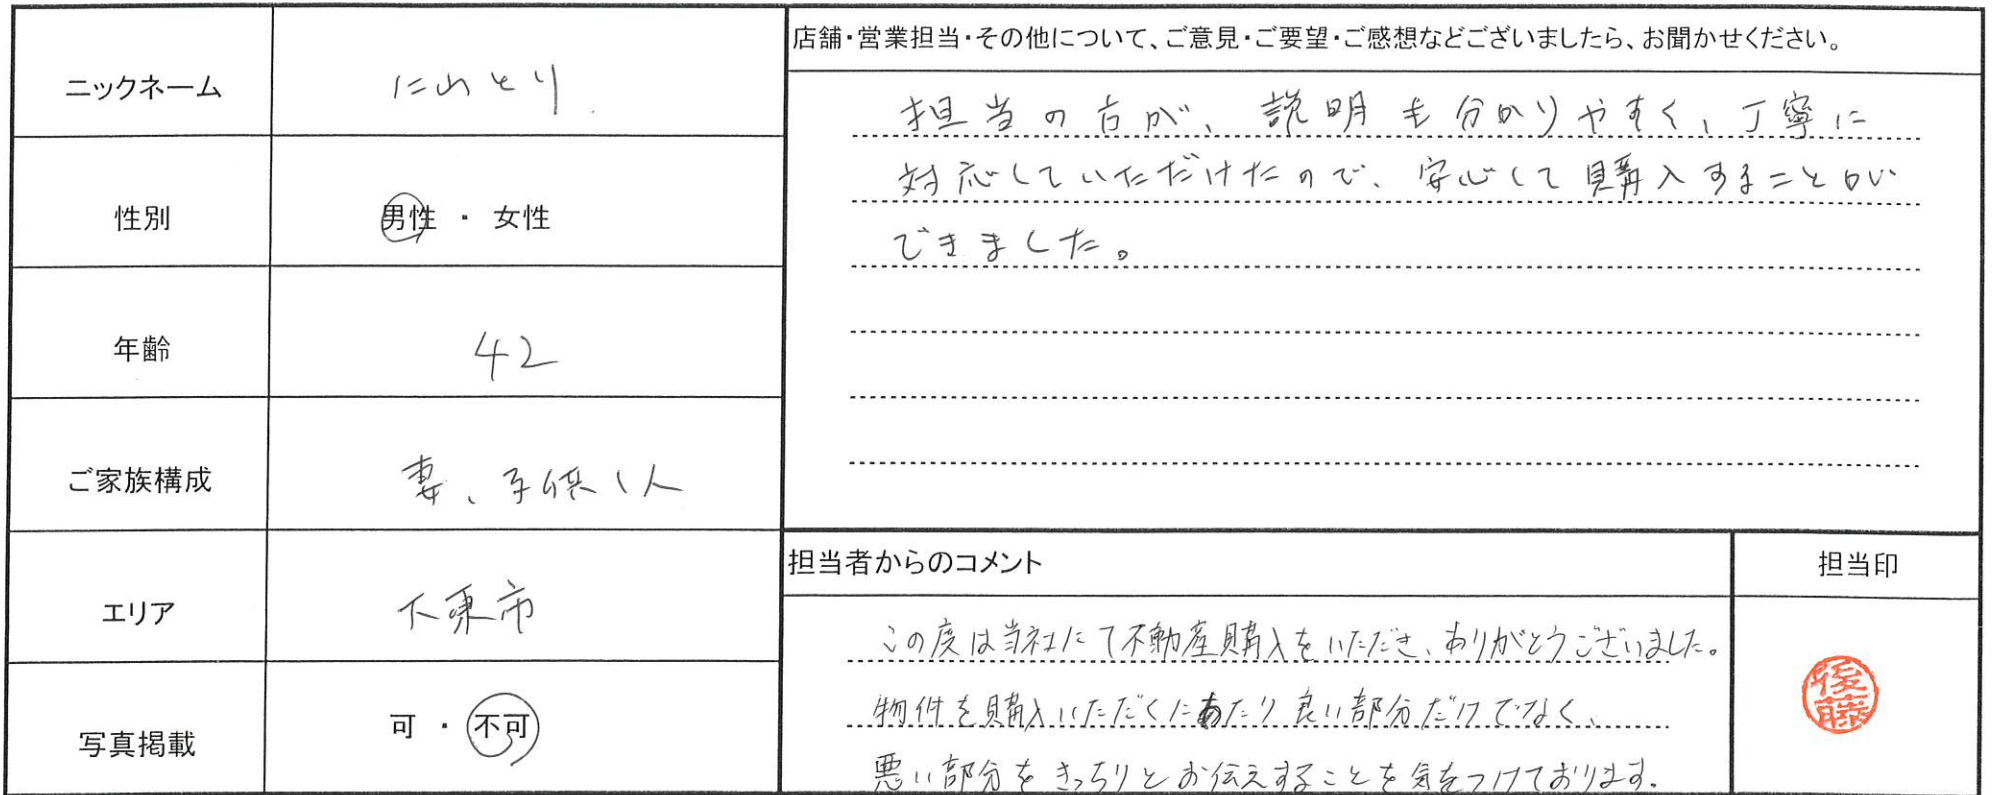 ニックネーム
にわとり
性別
男性 ・ 女性
年齢
42
ご家族構成
妻、子供1人
エリア
大東市
写真掲載
可 ・ 不可
店舗・営業担当・その他について、ご意見・ご要望・ご感想などございましたら、お聞かせください。
担当の方が、説明も分かりやすく、丁寧に
対応していただけたので、安心して購入することが
できました。
担当者からのコメント
この度は当社にて不動産購入をいただき、ありがとうございました。
物件を購入いただくにあたり良い部分だけでなく、
悪い部分をきっちりとお伝えすることを気をつけております。
担当印
後藤